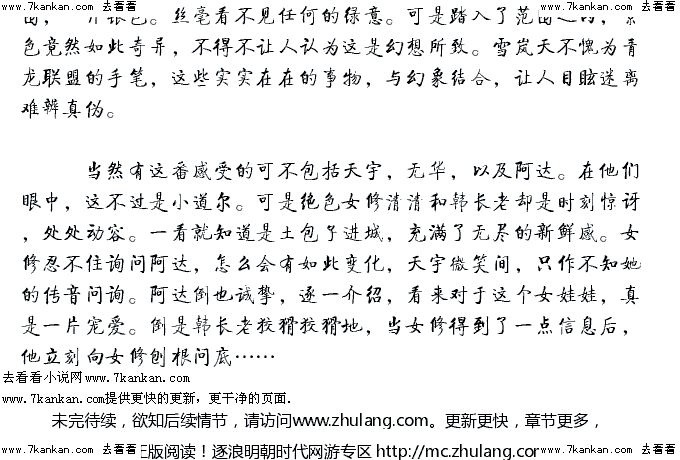 www.7kankan.com 去看看 www.7kankan.com 去看看 www.7kankan.com 去看看
面，一片银色。丝毫看不见任何的绿意。可是踏入了范围之内，景
色竟然如此奇异，不得不让人认为这是幻想所致。雪岚天不愧为青
龙联盟的手笔，这些实实在在的事物，与幻象结合，让人目眩迷离
难辨真伪。
当然有这番感受的可不包括天宇，无华，以及阿达。在他们
眼中，这不过是小道尔。可是绝色女修清清和韩长老却是时刻惊讶
，处处动容。一看就知道是土包子进城，充满了无尽的新鲜感。女
修忍不住询问阿达，怎么会有如此变化，天宇微笑间，只作不知她
的传音问询。阿达倒也诚挚，逐一介绍，看来对于这个女娃娃，真
是一片宠爱。倒是韩长老狡猾狡猾地，当女修得到了一点信息后，
他立刻向女修刨根问底……
去看看小说网www.7kankan.com
www.7kankan.com提供更快的更新，更干净的页面.
未完待续，欲知后续情节，请访问www.zhulang.com。更新更快，章节更多，
www.7kankan.com 去看看 正版阅读！逐浪明朝时代网游专区 http://mc.zhulang.com www.7kankan.com 去看看